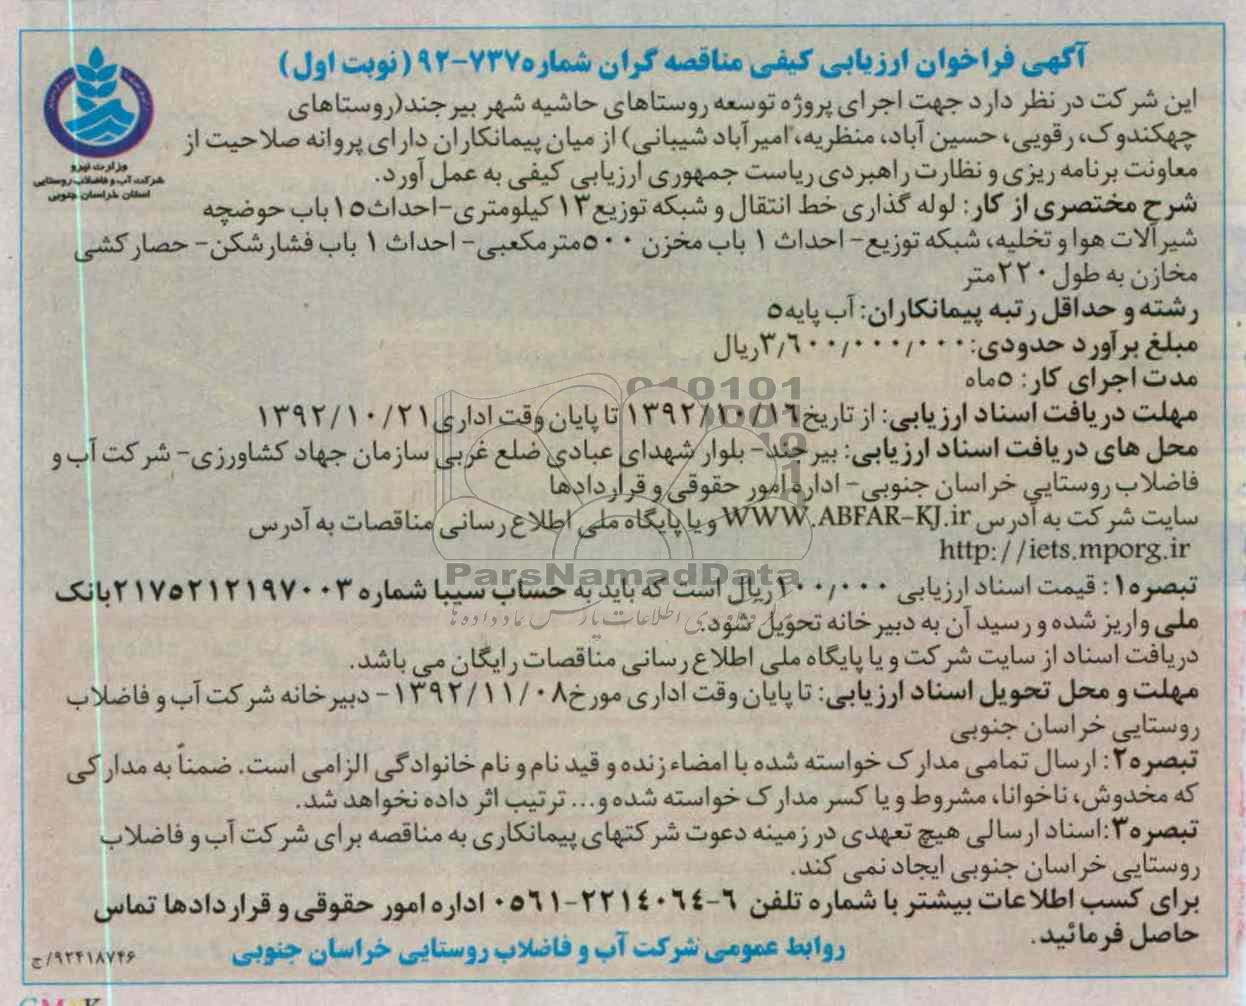 آگهی فراخوان ارزیابی کیفی مناقصه گران شماره ۷۳۷-۹۲ (نوبت اول)
وزارت نیرو
شرکت آب و فاضلاب روستایی
استان خراسان جنوبی
این شرکت در نظر دارد جهت اجرای پروژه توسعه روستاهای حاشیه شهر بیرجند(روستاهای
چهکندوک، رقویی، حسین آباد، منظریه، امیرآباد شیبانی) از میان پیمانکاران دارای پروانه صلاحیت از
معاونت برنامه ریزی و نظارت راهبردی ریاست جمهوری ارزیابی کیفی به عمل آورد.
شرح مختصری از کار: لوله گذاری خط انتقال و شبکه توزیع ۱۳ کیلومتری-احداث ۱۵ باب حوضچه
شیرآلات هوا و تخلیه، شبکه توزیع- احداث ۱ باب مخزن ۵۰۰ مترمکعبی- احداث ۱ باب فشارشکن- حصارکشی
مخازن به طول ۲۲۰ متر
رشته و حداقل رتبه پیمانکاران: آب پایه ۵
مبلغ برآورد حدودی: ۳٫۶۰۰٫۰۰۰٫۰۰۰ ریال
مدت اجرای کار: ۵ ماه
مهلت دریافت اسناد ارزیابی: از تاریخ ۱۳۹۲/۱۰/۱۶ تا پایان وقت اداری ۱۳۹۲/۱۰/۲۱
محل های دریافت اسناد ارزیابی: بیرجند- بلوار شهدای عبادی ضلع غربی سازمان جهاد کشاورزی- شرکت آب و
فاضلاب روستایی خراسان جنوبی- اداره امور حقوقی و قراردادها
سایت شرکت به آدرس WWW.ABFAR-KJ.ir و یا پایگاه ملی اطلاع رسانی مناقصات به آدرس
http://iets.mporg.ir
ParsNamadData
تبصره۱: قیمت اسناد ارزیابی ۱۰۰٫۰۰۰ ریال است که باید به حساب سیبا شماره ۲۱۷۵۲۱۲۱۹۷۰۰۳ بانک
ملی واریز شده و رسید آن به دبیرخانه تحویل شود.
دریافت اسناد از سایت شرکت و یا پایگاه ملی اطلاع رسانی مناقصات رایگان می باشد.
مهلت و محل تحویل اسناد ارزیابی: تا پایان وقت اداری مورخ ۱۳۹۲/۱۱/۰۸- دبیرخانه شرکت آب و فاضلاب
روستایی خراسان جنوبی
تبصره۲: ارسال تمامی مدارک خواسته شده با امضاء زنده و قید نام و نام خانوادگی الزامی است. ضمناً به مدارکی
که مخدوش، ناخوانا، مشروط و یا کسر مدارک خواسته شده و... ترتیب اثر داده نخواهد شد.
تبصره۳: اسناد ارسالی هیچ تعهدی در زمینه دعوت شرکتهای پیمانکاری به مناقصه برای شرکت آب و فاضلاب
روستایی خراسان جنوبی ایجاد نمی کند.
برای کسب اطلاعات بیشتر با شماره تلفن ۶-۲۲۱۴۰۶۴-۰۵۶۱ اداره امور حقوقی و قراردادها تماس
حاصل فرمائید.
روابط عمومی شرکت آب و فاضلاب روستایی خراسان جنوبی
۹۲۴۱۸۷۴۶/ج